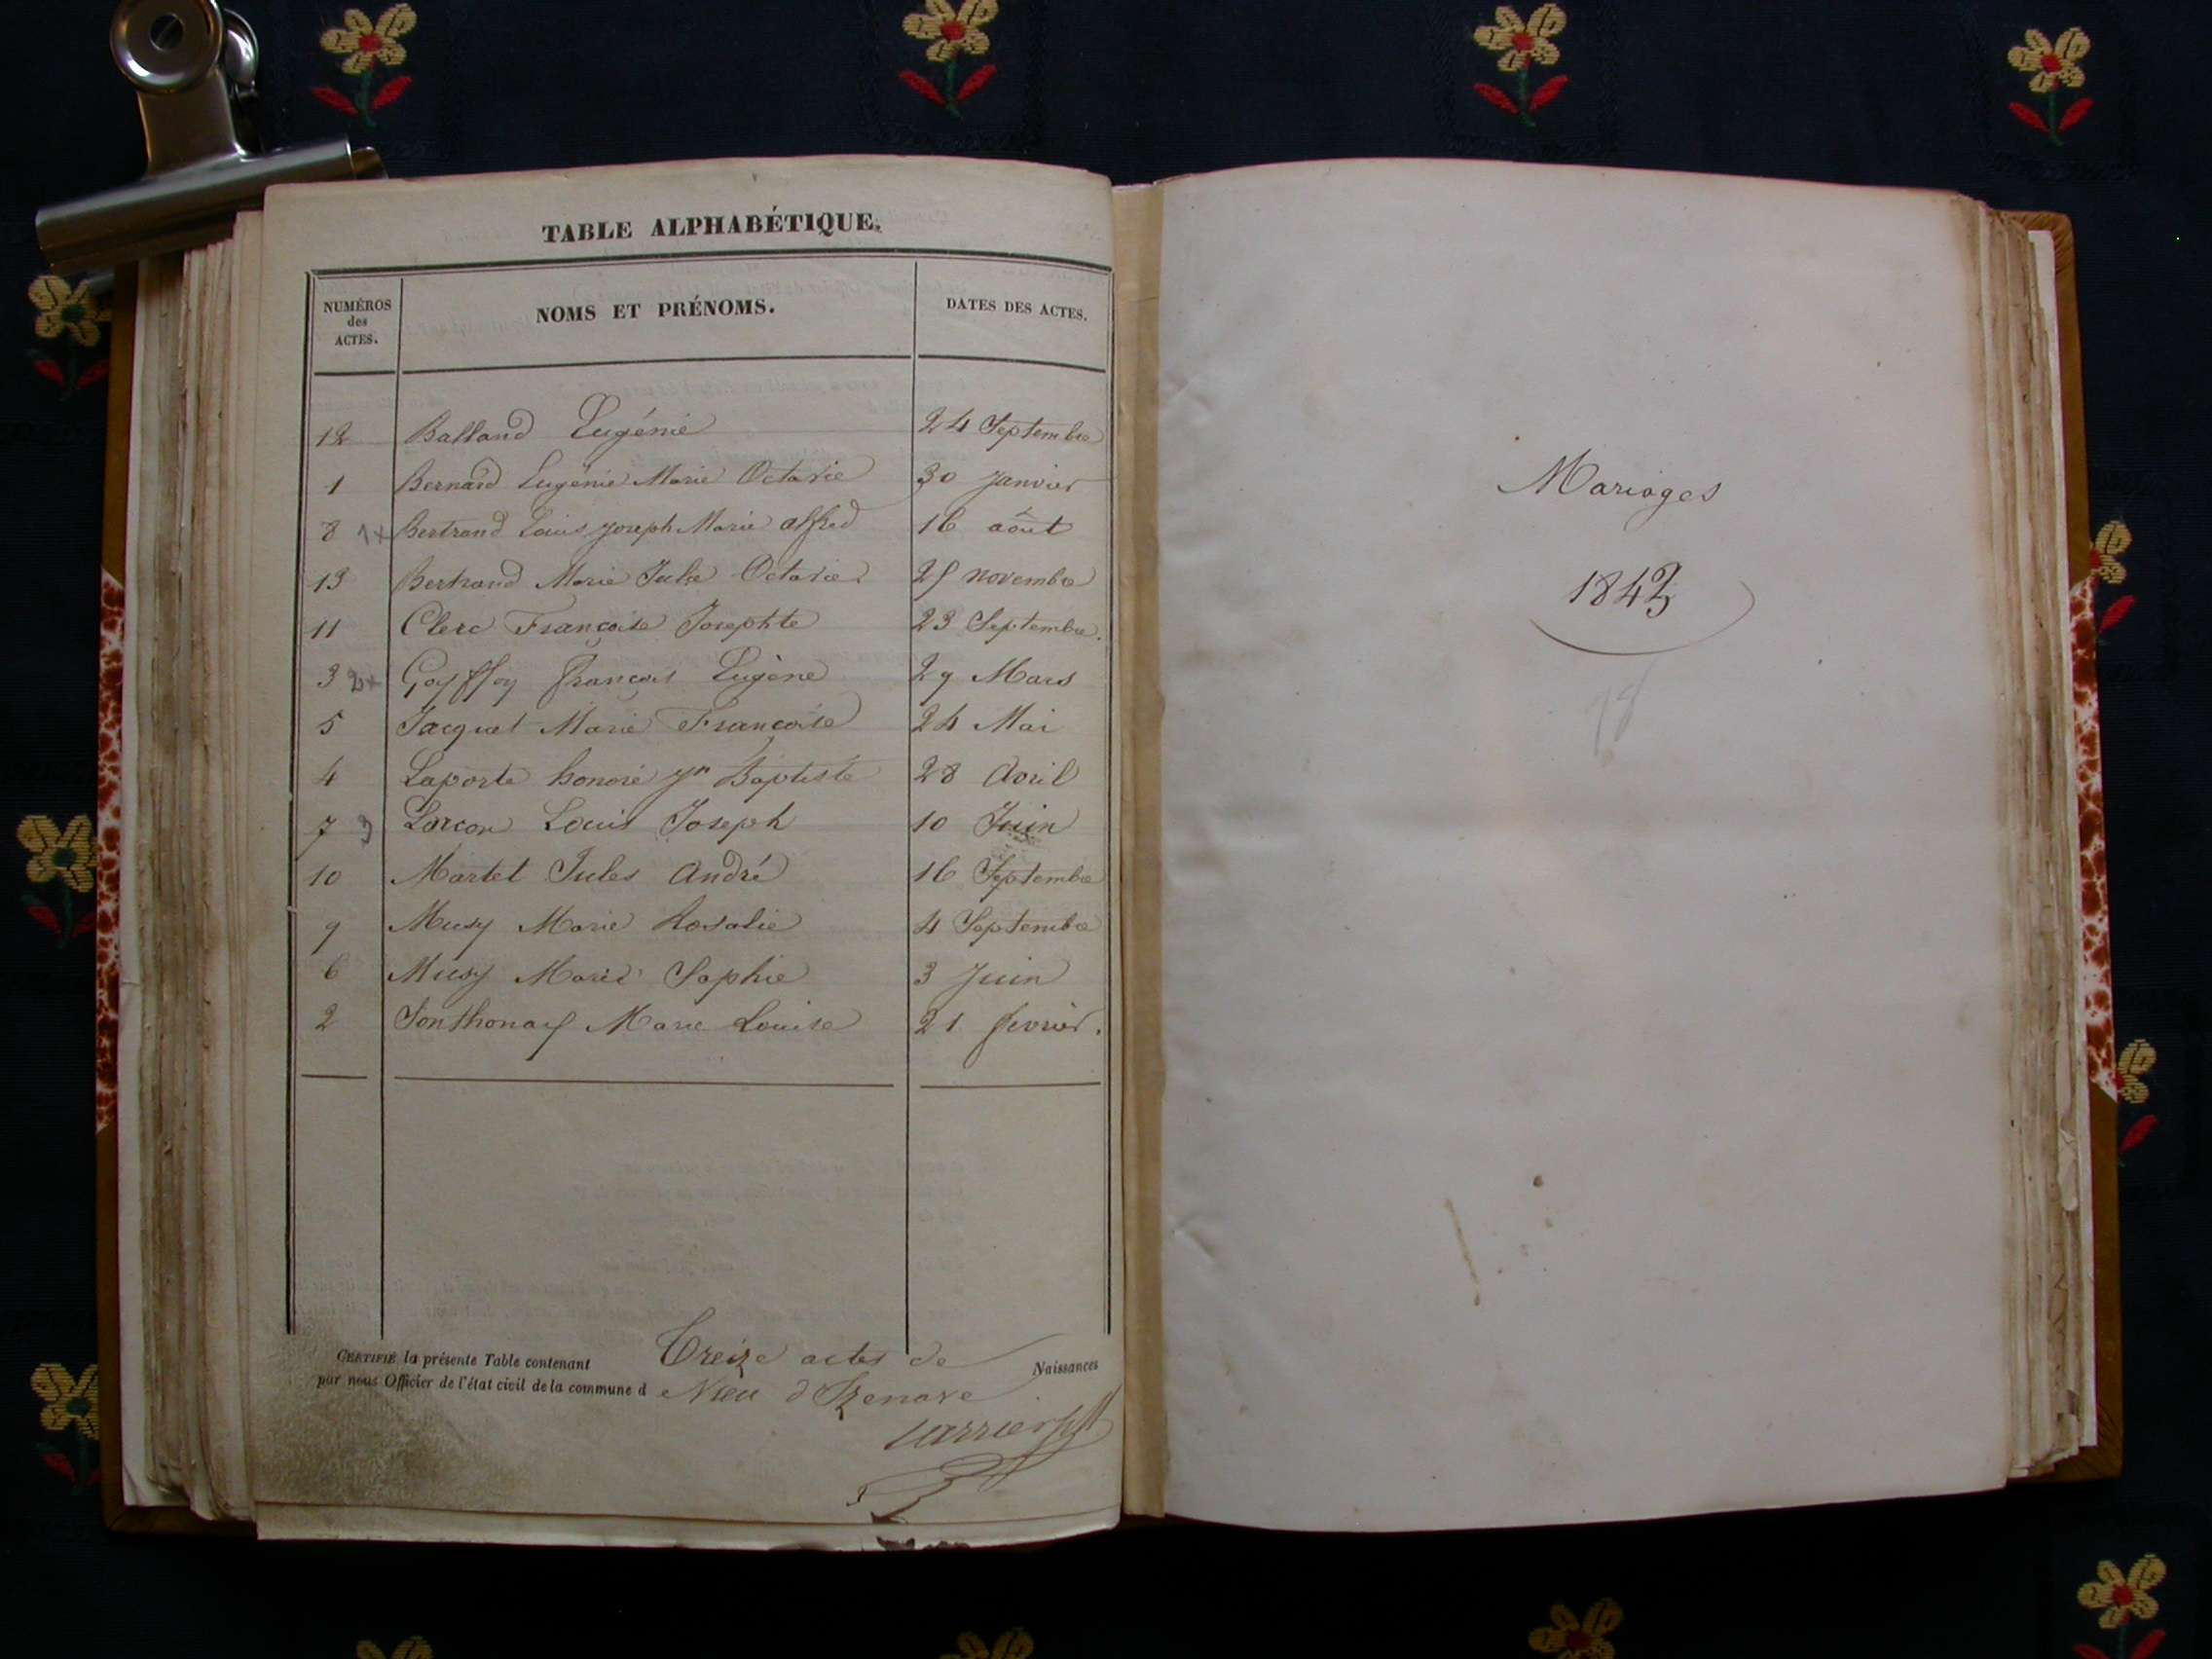 TABLE ALPHABÉTIQUE.
NUMÉROS des ACTES. NOMS ET PRÉNOMS. DATES DES ACTES.
12 Balland Eugénie 24 Septembre
1 Bernard Eugénie Marie Octavie 30 Janvier
8 Bertrand Louis Joseph Marie alfred 16 août
13 Bertrand Marie Julie Octavie 25 novembre
11 Clerc Françoise Josephte 23 Septembre.
3 2x François Eugène 29 Mars
5 Jacquet Marie Françoise 24 Mai
4 Laporte honoré Jn Baptiste 28 Avril
7 3 Lorcon Louis Joseph 10 Juin
10 Martel Jules André 16 Septembre
9 Musy Marie Rosalie 4 Septembre
6 Musy Marie Sophie 3 Juin
2 Sonthonax Marie Louise 21 fevrier.
CERTIFIÉ la présente Table contenant Treize actes de Naissances
par nous Officier de l'état civil de la commune d e Vieu d'Izenave
Mariages
1843